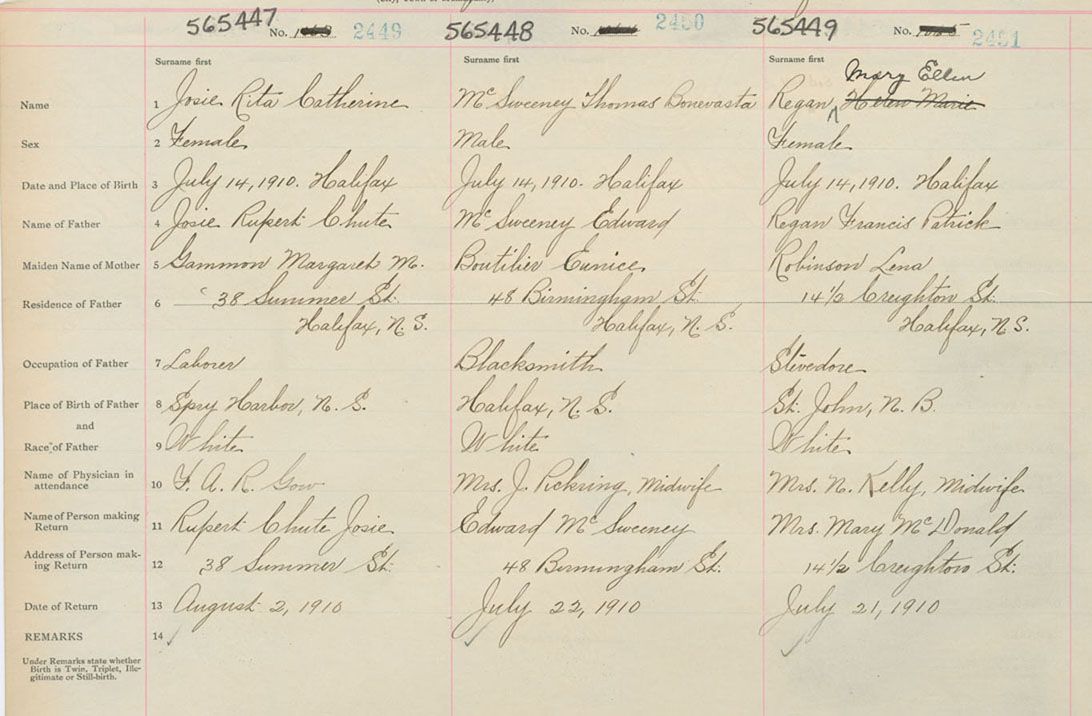 565447 No. 2449 565448 No. 2450 565449 No. 2451
Surname first Surname first Surname first
Mary Ellen
Name 1 Josie Rita Catherine McSweeney Thomas Bonevasta Regan ^ Helen Marie
Sex 2 Female Male Female
Date and Place of Birth 3 July 14, 1910. Halifax July 14, 1910. Halifax July 14, 1910. Halifax
Name of Father 4 Josie Rupert Chute McSweeney Edward Regan Francis Patrick
Maiden Name of Mother 5 Gammon Margaret M. Boutilier Eunice Robinson Lena
Residence of Father 6 38 Summer St. 48 Birmingham St. 14½ Creighton St.
Halifax, N.S. Halifax, N.S. Halifax, N.S.
Occupation of Father 7 Laborer Blacksmith Stevedore
Place of Birth of Father 8 Spry Harbor, N.S. Halifax, N.S. St. John, N.B.
and
Race of Father 9 White White White
Name of Physician in
attendance 10 F. A. R. Gow Mrs. J. Pickring, Midwife Mrs. N. Kelly, Midwife
Name of Person making
Return 11 Rupert Chute Josie Edward McSweeney Mrs. Mary McDonald
Address of Person mak-
ing Return 12 38 Summer St. 48 Birmingham St. 14½ Creighton St.
Date of Return 13 August 2, 1910 July 22, 1910 July 21, 1910
REMARKS 14
Under Remarks state whether
Birth is Twin, Triplet, Ille-
gitimate or Still-birth.